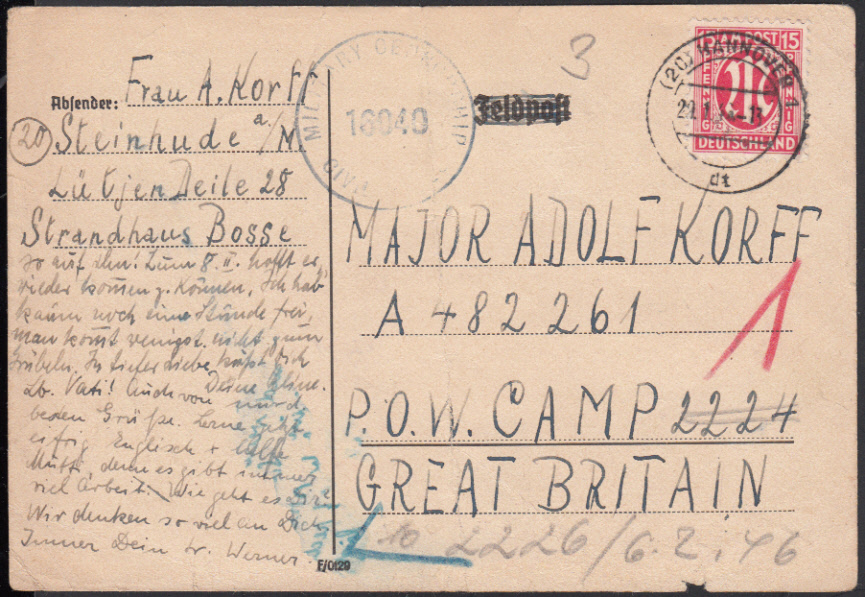 Absender: Frau A. Korff
20 Steinhude a./M.
Lütjen Deile 28
Strandhaus Bosse
so auf ihn! Zum 8. II. hofft er,
wieder kommen z. können. Ich hab'
kaum noch eine Stunde frei,
man kommt wenigst. nicht zum
Grübeln. In tiefer Liebe küßt Dich
Deine
Lb. Vati! Auch von mir d.
besten Grüße. Lerne
eifrig Englisch + helfe
Mutti, denn es gibt immer
viel Arbeit. Wie geht es Dir?
Wir denken so viel an Dich.
Immer Dein Werner.
F/0129
MILITARY CENSORSHIP
16040
PAID
3
Feldpost
(20) HANNOVER 1
dt
15 AM POST 15
PFENNIG
M
DEUTSCHLAND
MAJOR ADOLF KORFF
A 482 261
1
P.O.W. CAMP 2224
GREAT BRITAIN
2226/6.2.46